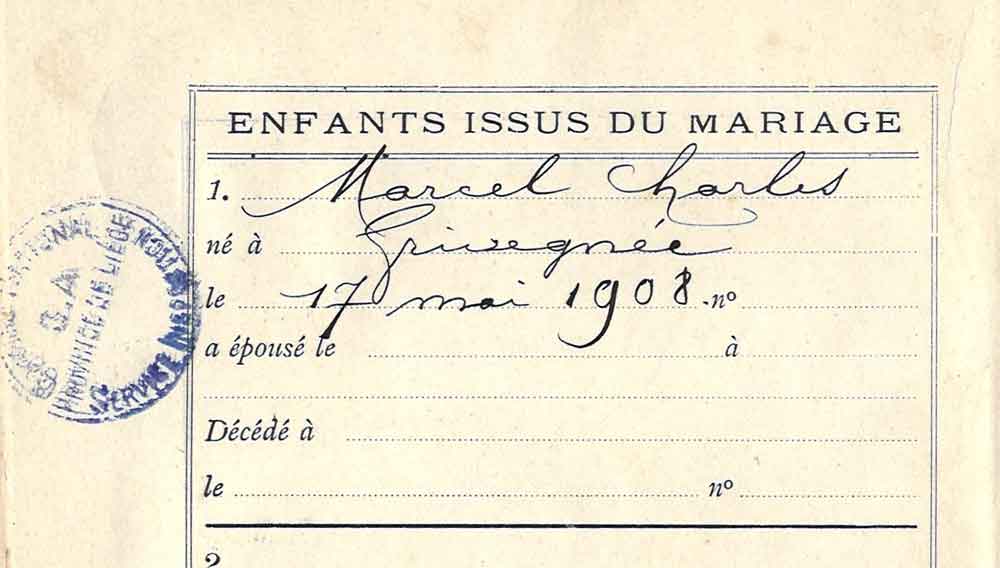 ENFANTS ISSUS DU MARIAGE
1. Marcel Charles
né à Grivegnée
le 17 mai 1908 nº
a épousé le à
Décédé à
le nº
2.
PROVINCE DE LIEGE
SERVICE